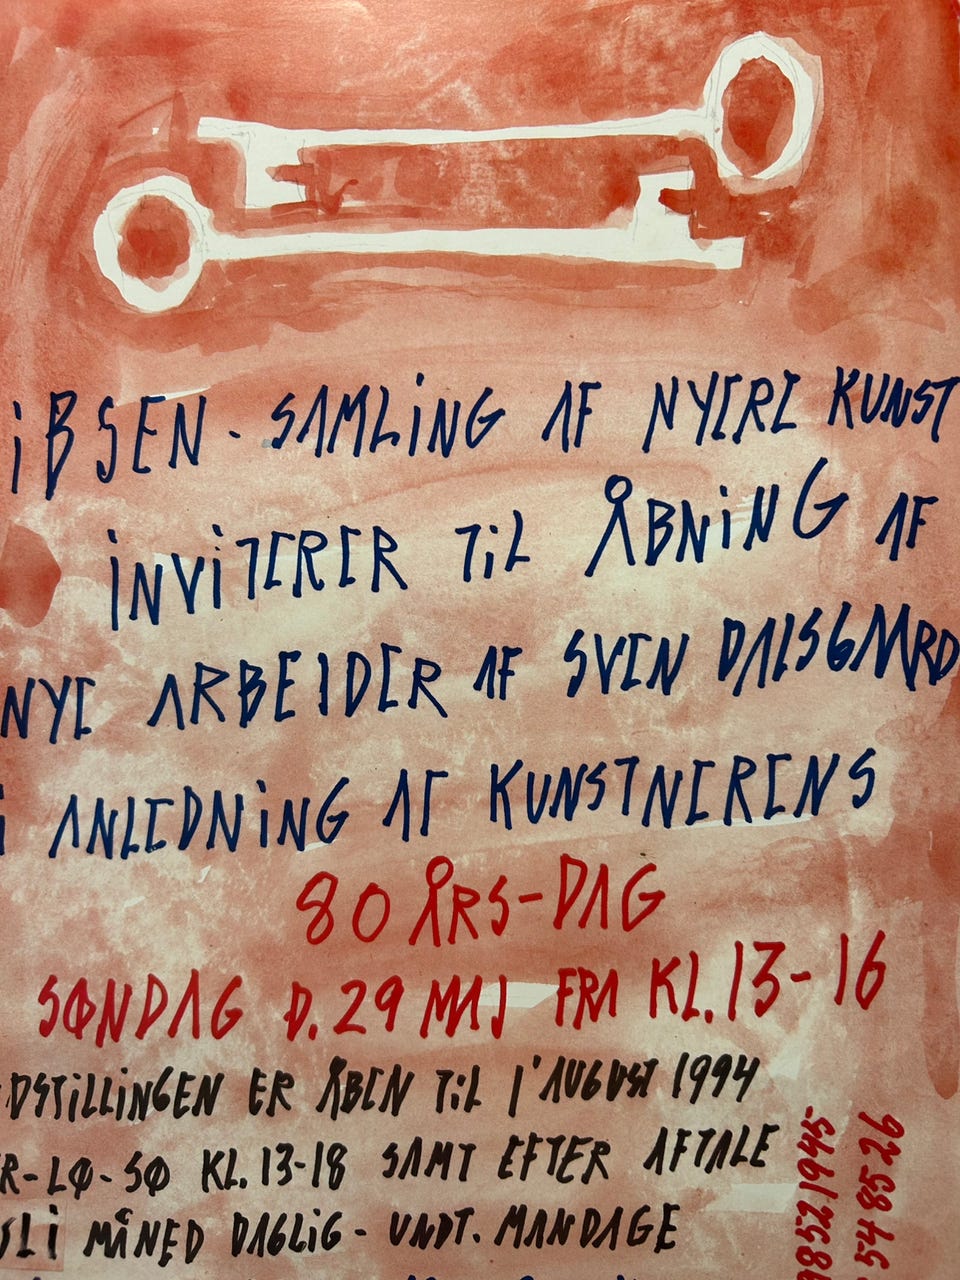 IBSEN - SAMLING AF NYERE KUNST
INVITERER TIL ÅBNING AF
NYE ARBEJDER AF SVEN DALSGAARD
I ANLEDNING AF KUNSTNERENS
80 ÅRS-DAG
SØNDAG D. 29 MAJ FRA KL. 13-16
DSTILLINGEN ER ÅBEN TIL 1' AUGUST 1994
R-LØ-SØ KL. 13-18 SAMT EFTER AFTALE
LI MÅNED DAGLIG - UNDT. MANDAGE
98521945
548526